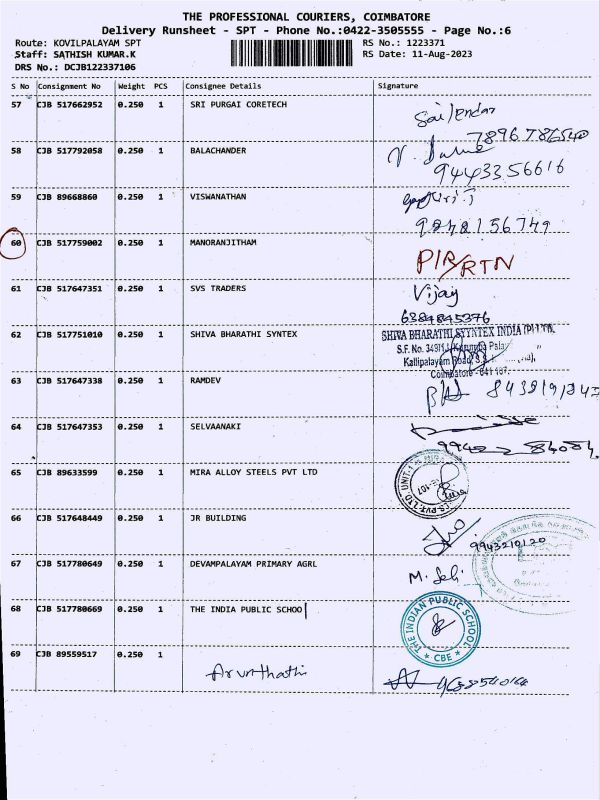 THE PROFESSIONAL COURIERS, COIMBATORE
Delivery Runsheet - SPT - Phone No.:0422-3505555 - Page No.:6
Route: KOVILPALAYAM SPT
RS No.: 1223371
Staff: SATHISH KUMAR.K
RS Date: 11-Aug-2023
DRS No.: DCJB122337106
S No Consignment No Weight PCS Consignee Details Signature
57 CJB 517662952 0.250 1 SRI PURGAI CORETECH
7896786540
58 CJB 517792058 0.250 1 BALACHANDER
9443356616
59 CJB 89668860 0.250 1 VISWANATHAN
60 CJB 517759002 0.250 1 MANORANJITHAM
PIR/RTN
61 CJB 517647351 0.250 1 SVS TRADERS Vijay
6384845376
62 CJB 517751010 0.250 1 SHIVA BHARATHI SYNTEX SHIVA BHARATHI SYNTEX INDIA (P) LTD.
S.F. No.
Kallipalayam Road,
Coimbatore - 641 107.
63 CJB 517647338 0.250 1 RAMDEV
64 CJB 517647353 0.250 1 SELVAANAKI
65 CJB 89633599 0.250 1 MIRA ALLOY STEELS PVT LTD
66 CJB 517648449 0.250 1 JR BUILDING
9943210120
67 CJB 517780649 0.250 1 DEVAMPALAYAM PRIMARY AGRL M. Seli
68 CJB 517780669 0.250 1 THE INDIA PUBLIC SCHOO THE INDIAN PUBLIC SCHOOL
* CBE *
69 CJB 89559517 0.250 1 Arunthathi